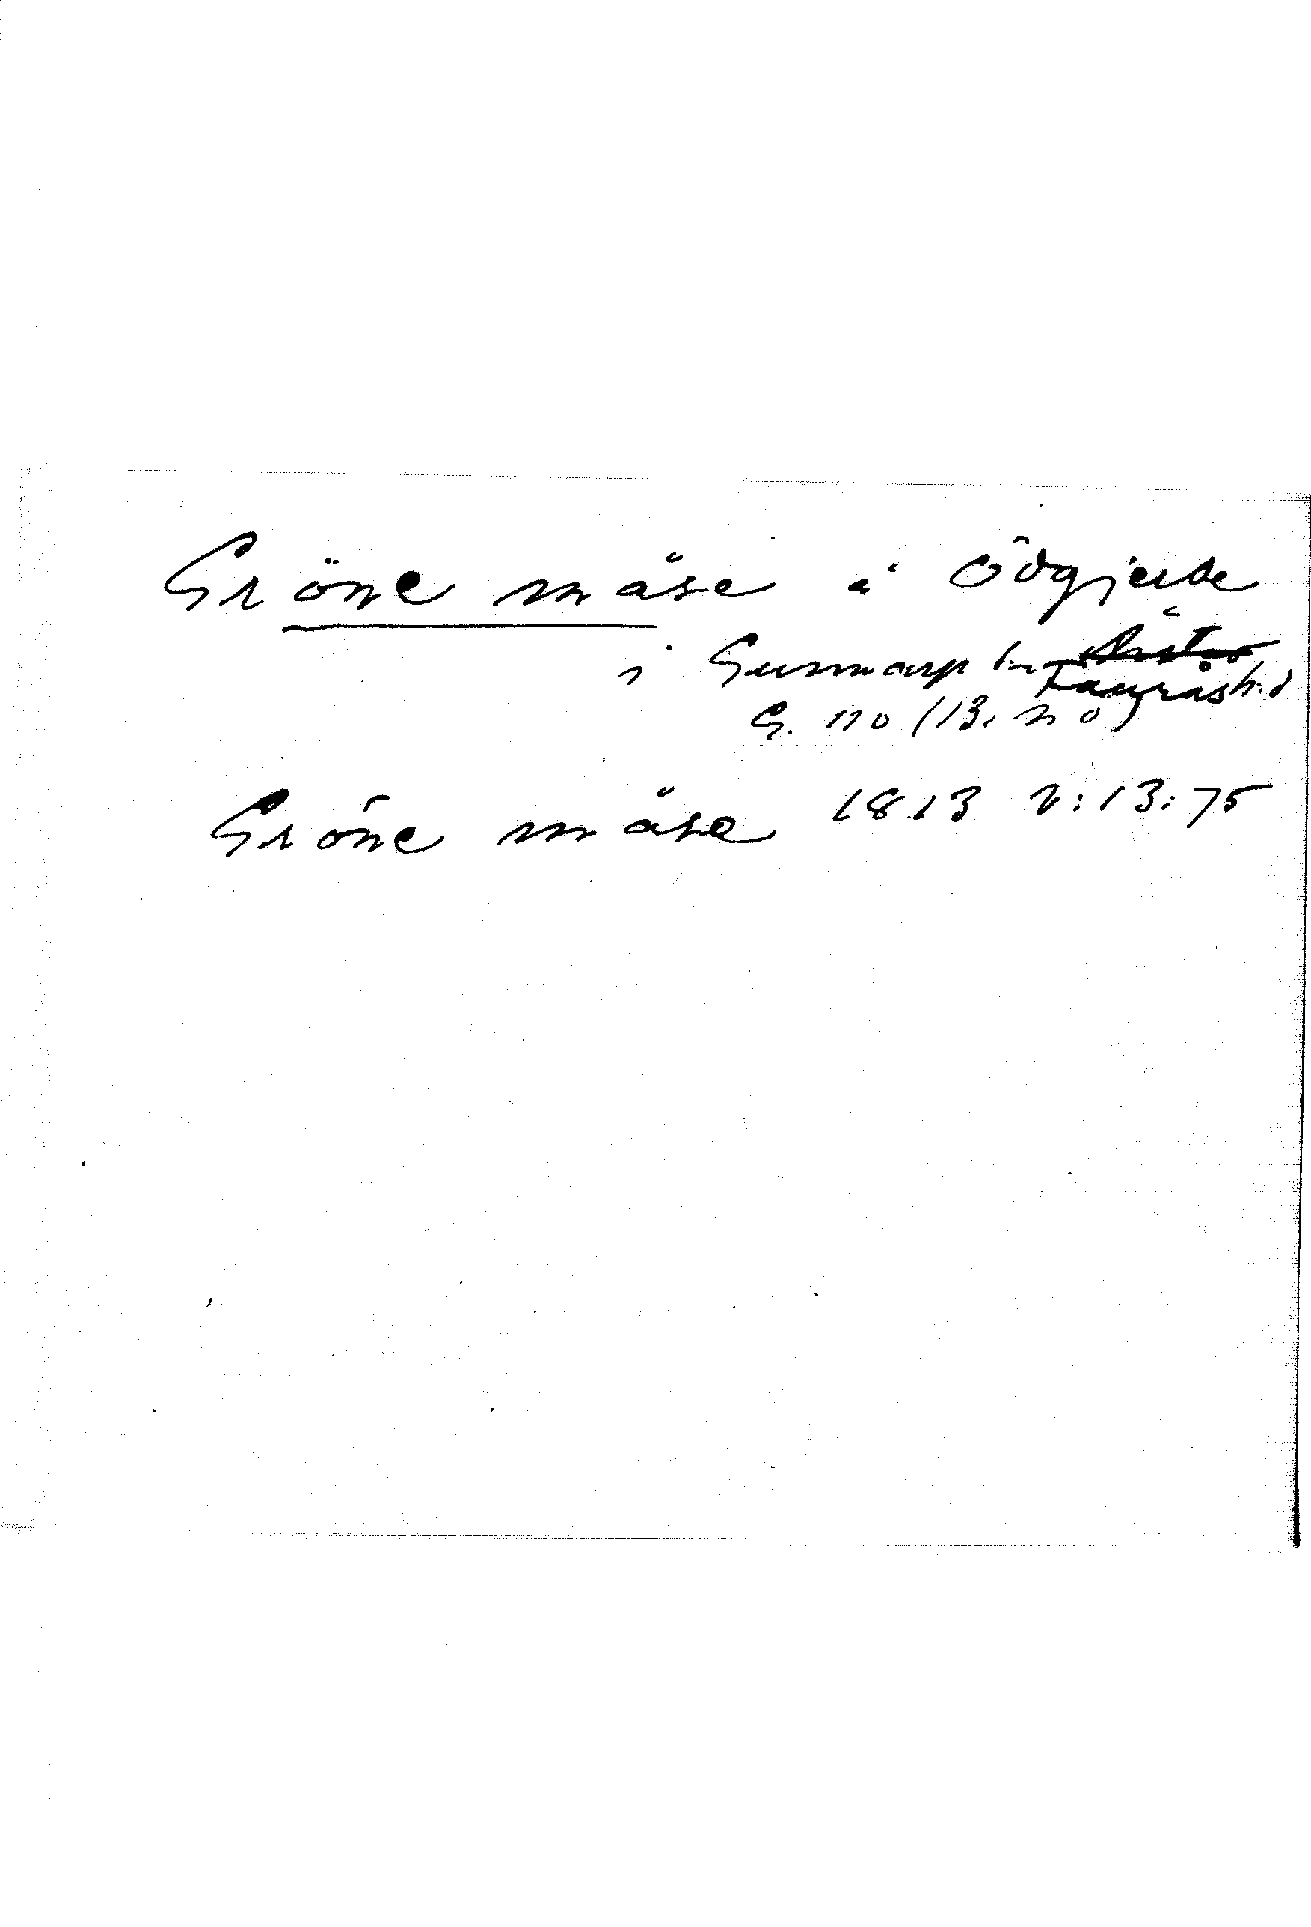 Gröne måse å Ödgjerde
i Gunnarp sn Fauråshd
G. no (13. no)
Gröne måse 1813 2:13:75